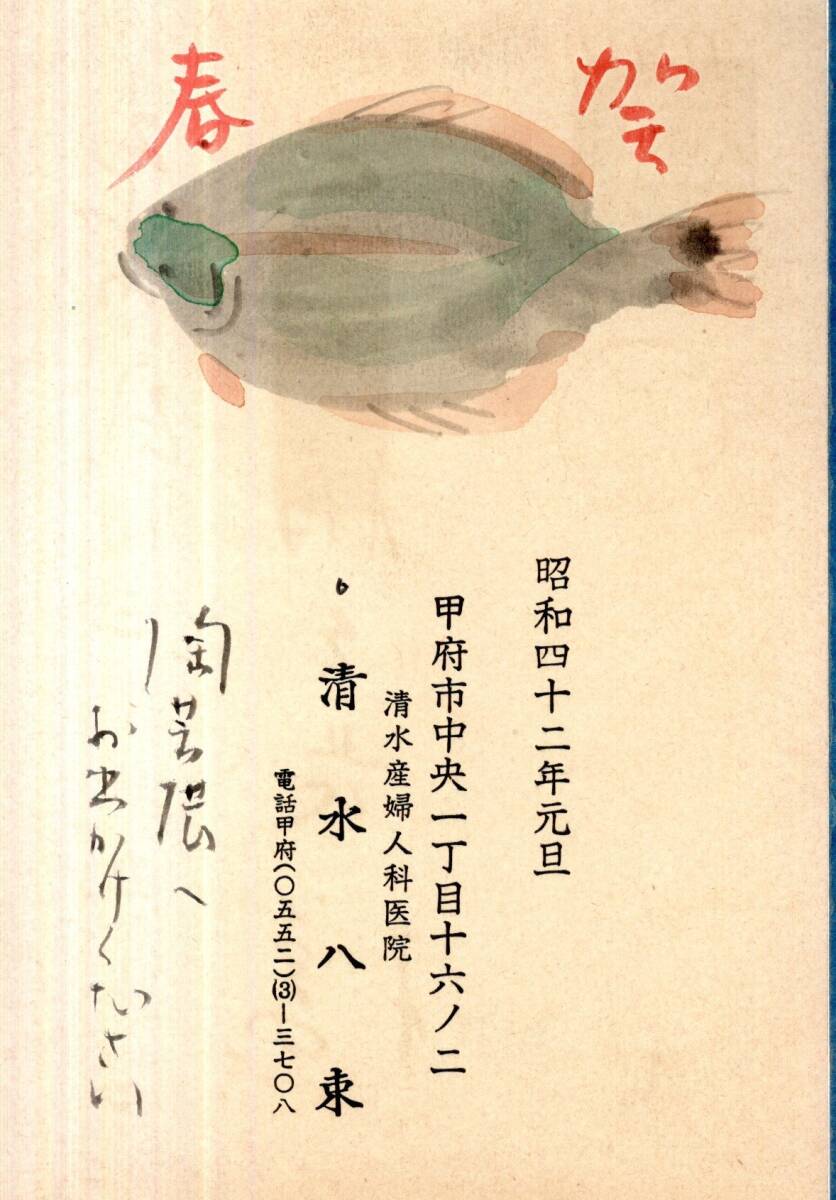 賀春
昭和四十二年元旦
甲府市中央一丁目十六ノ二
清水産婦人科医院
清水八束
電話甲府(〇五五二)(3)ー三七〇八
陶芸展へ
お出かけください